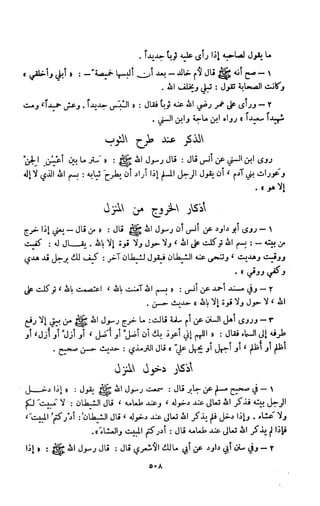 ما يقول لصاحبه إذا رأى عليه ثوباً جديداً.
١ - صح أنه ﷺ قال لأم خالد - بعد أن ألبسها خميصة - : « أبلي وأخلقي »
وكانت الصحابة تقول : تبلي ويخلف الله .
٢ - ورأى على عمر رضي الله عنه ثوباً فقال : « البس جديداً . وعش حميداً ، ومت
شهيداً سعيداً » رواه ابن ماجة وابن السني .
الذكر عند طرح الثوب
روى ابن السني عن أنس قال : قال رسول الله ﷺ : « ستر ما بين أعين الجن
وعورات بني آدم ، أن يقول الرجل المسلم إذا أراد أن يطرح ثيابه : بسم الله الذي لا إله
إلا هو » .
أذكار الخروج من المنزل
١ - روى أبو داود عن أنس أن رسول الله ﷺ قال : « من قال - يعني إذا خرج
من بيته - : بسم الله توكلت على الله ، ولا حول ولا قوة إلا بالله . يقال له : كفيت
ووقيت وهديت ، وتنحى عنه الشيطان فيقول لشيطان آخر : كيف لك برجل قد هدي
وكفي ووقي » .
٢ - وفي مسند أحمد عن أنس : « بسم الله آمنت بالله ، اعتصمت بالله ، توكلت على
الله ، لا حول ولا قوة إلا بالله » حديث حسن .
٣ - وروى أهل السنن عن أم سلمة قالت : ما خرج رسول الله ﷺ من بيتي إلا رفع
طرفه إلى السماء فقال : « اللهم إني أعوذ بك أن أضل أو أضل ، أو أزل أو أزل ، أو
أظلم أو أظلم ، أو أجهل أو يجهل علي » قال الترمذي : حديث حسن صحيح .
أذكار دخول المنزل
١ - في صحيح مسلم عن جابر قال : سمعت رسول الله ﷺ يقول : « إذا دخل
الرجل بيته فذكر الله تعالى عند دخوله ، وعند طعامه ، قال الشيطان : لا مبيت لكم
ولا عشاء . وإذا دخل فلم يذكر الله تعالى عند دخوله ، قال الشيطان : أدركتم المبيت ،
فإذا لم يذكر الله تعالى عند طعامه قال : أدركتم المبيت والعشاء » .
٢ - وفي سنن أبي داود عن أبي مالك الأشعري قال : قال رسول الله ﷺ : « إذا
٥٠٨